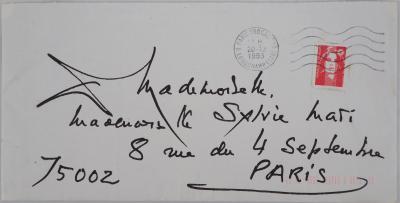 20-12
1993
Mademoiselle,
Mademoiselle Sylvie Mati
8 rue du 4 Septembre
75002 PARIS